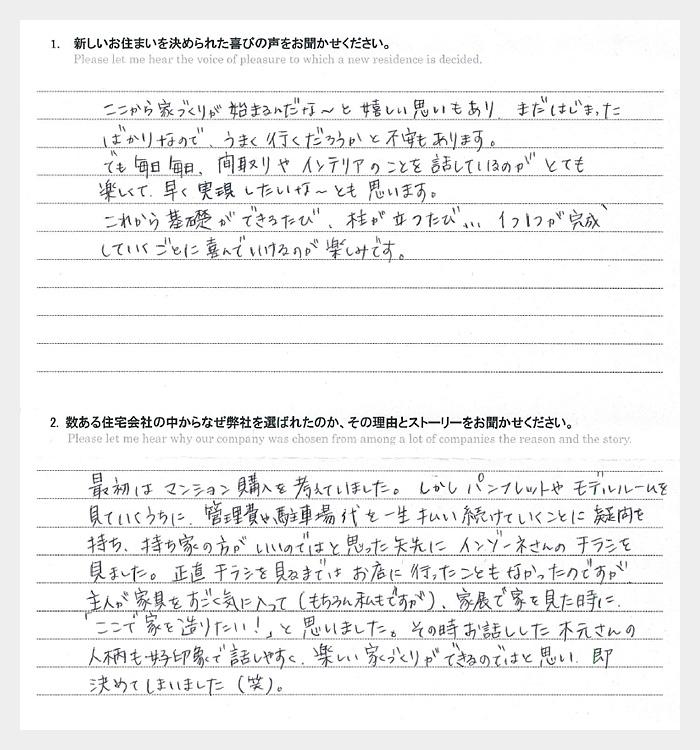 1. 新しいお住まいを決められた喜びの声をお聞かせください。
Please let me hear the voice of pleasure to which a new residence is decided.
ここから家づくりが始まるんだな〜と嬉しい思いもあり、まだはじまった
ばかりなので、うまく行くだろうかと不安もあります。
でも毎日毎日、間取りやインテリアのことを話しているのがとても
楽しくて、早く実現したいな〜とも思います。
これから基礎ができるたび、柱が立つたび… 1つ1つが完成
していくごとに喜んでいけるのが楽しみです。
2. 数ある住宅会社の中からなぜ弊社を選ばれたのか、その理由とストーリーをお聞かせください。
Please let me hear why our company was chosen from among a lot of companies the reason and the story.
最初はマンション購入を考えていました。しかしパンフレットやモデルルームを
見ていくうちに、管理費や駐車場代を一生払い続けていくことに疑問を
持ち、持ち家の方がいいのではと思った矢先にインゾーネさんのチラシを
見ました。正直チラシを見るまではお店に行ったこともなかったのですが
主人が家具をすごく気に入って(もちろん私もですが)、家展で家を見た時に、
「ここで家を造りたい!」と思いました。その時お話しした木元さんの
人柄も好印象で話しやすく、楽しい家づくりができるのではと思い、即
決めてしまいました(笑)。